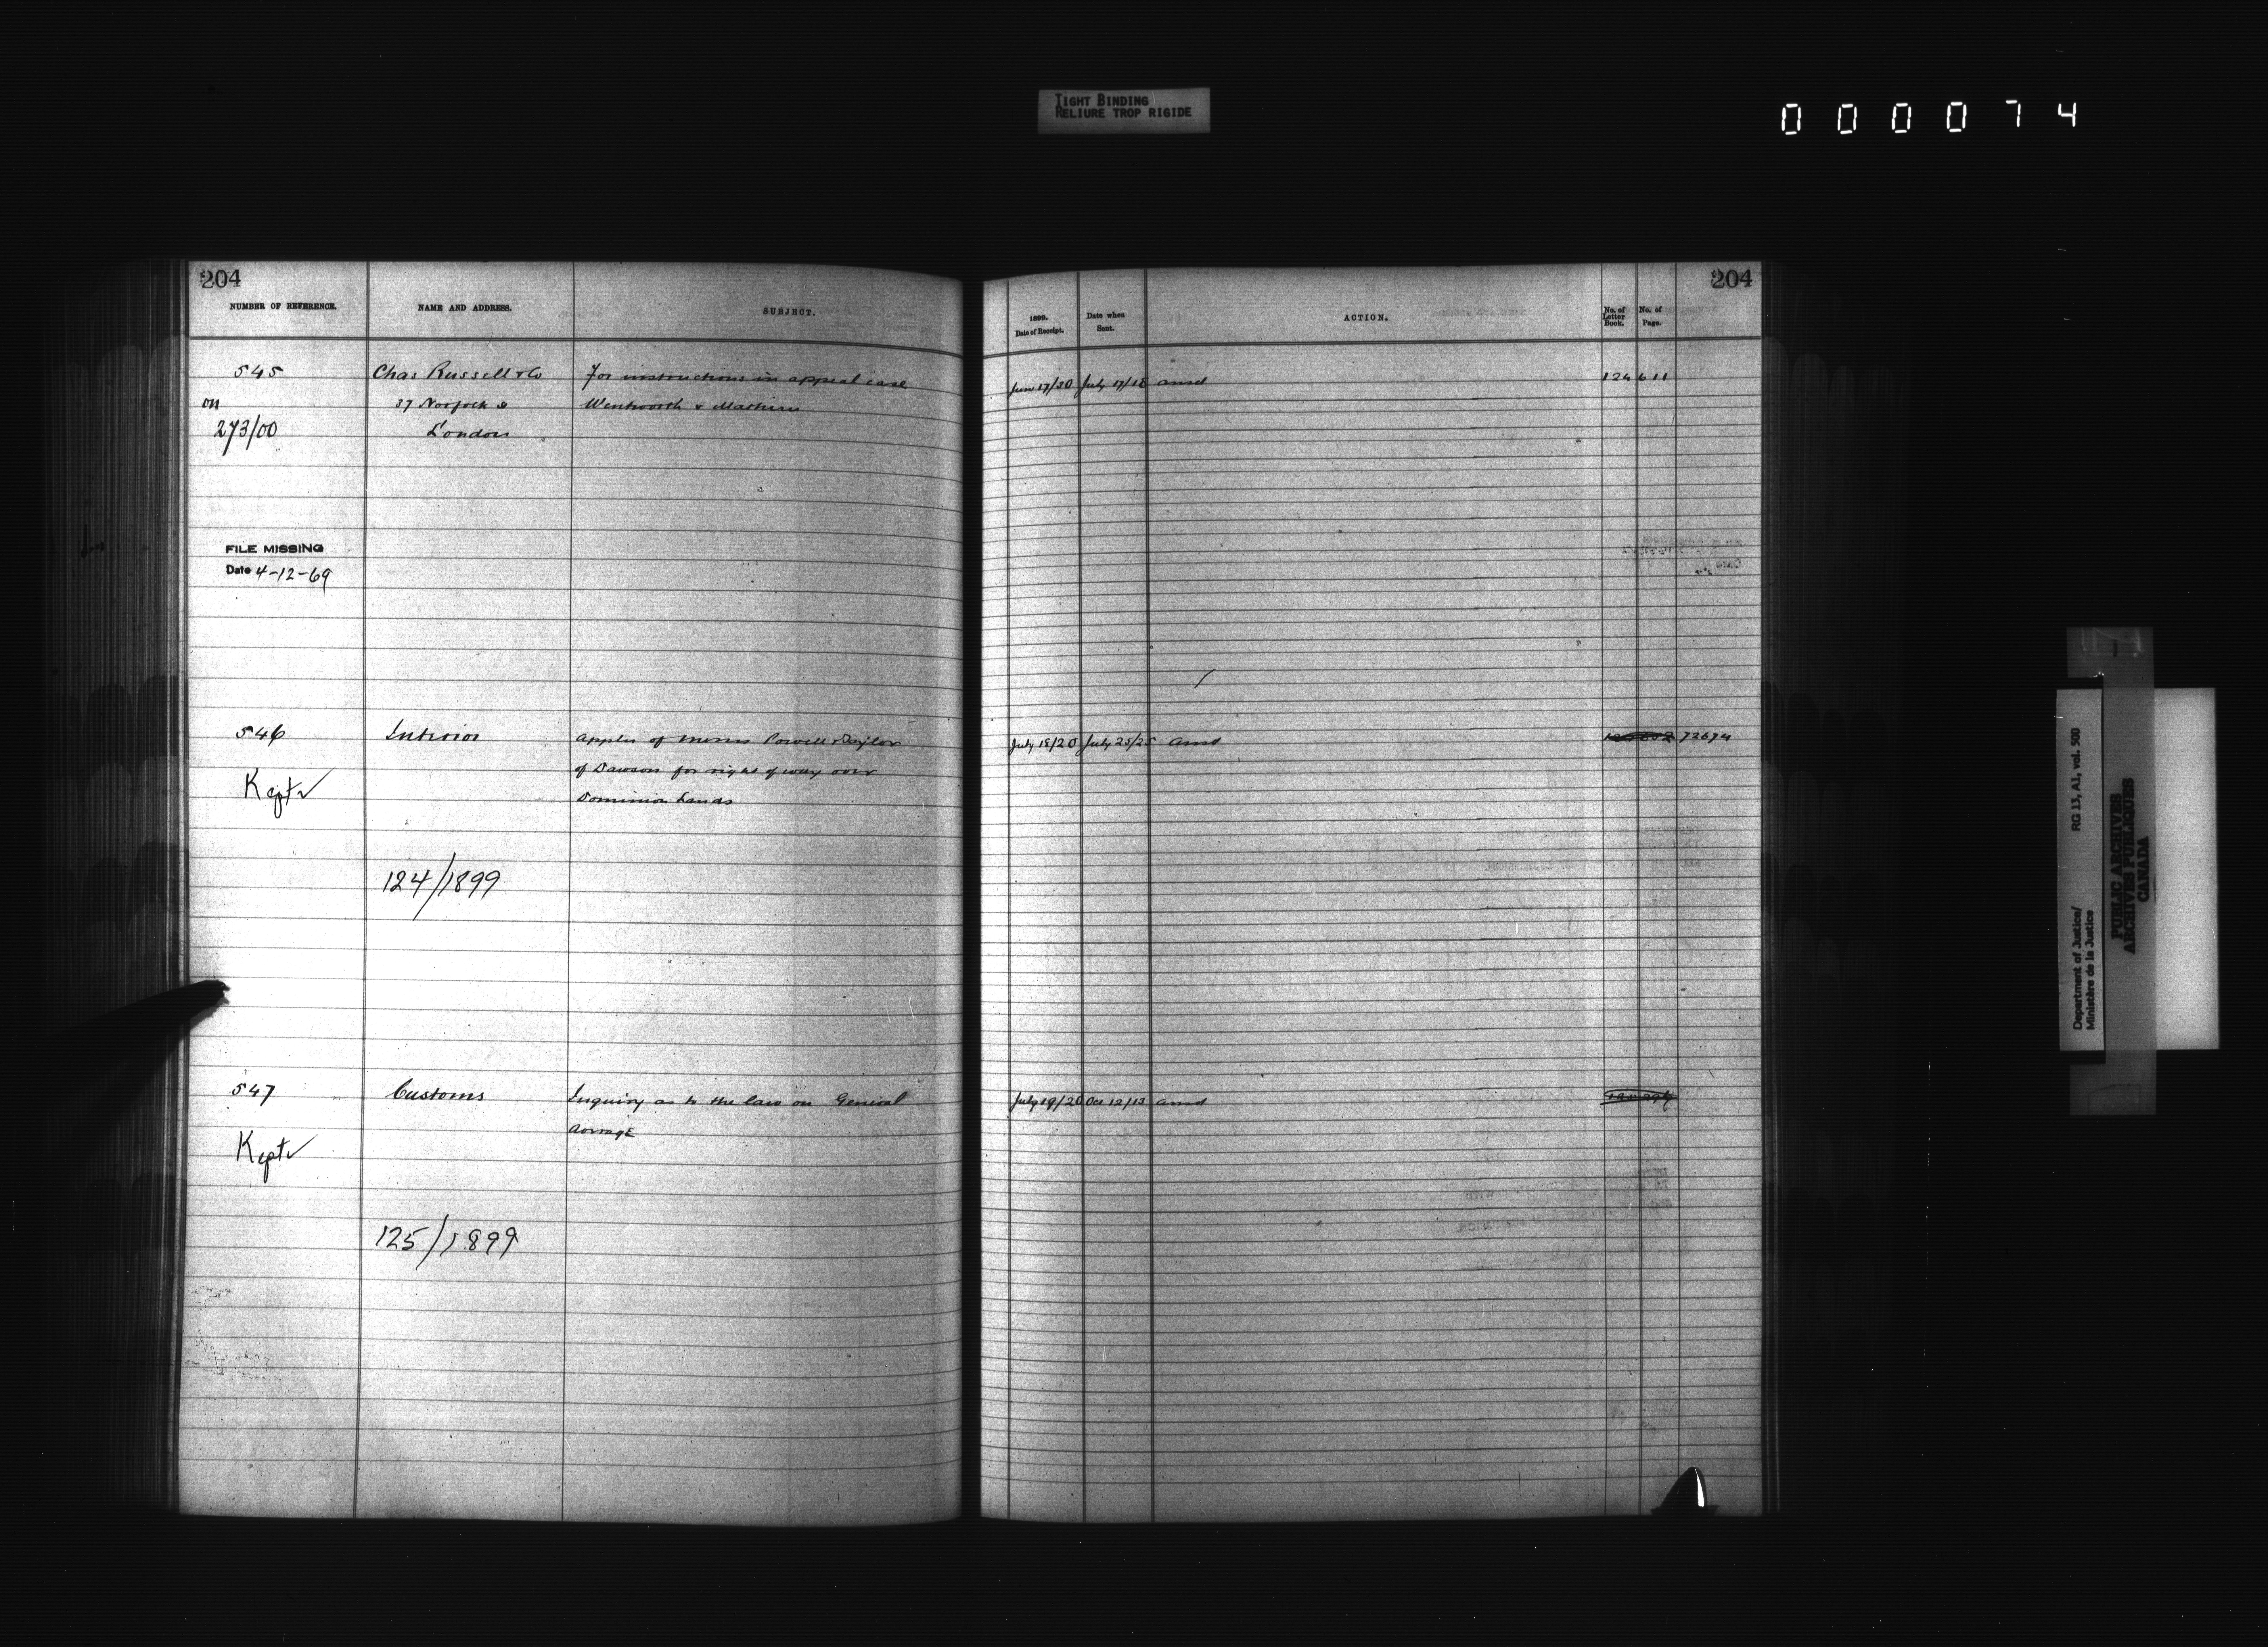 TIGHT BINDING
RELIURE TROP RIGIDE
000074
204
NUMBER OF REFERENCE. NAME AND ADDRESS. SUBJECT.
545 Chas Russell & Co For instructions in appeal case
on 37 Norfolk St Wentworth v Mathieu
273/00 London
FILE MISSING
Date 4-12-69
546 Interior Applcn of Messrs Powell & Taylor
of Dawson for right of way over
Kept Dominion Lands
124/1899
547 Customs Inquiry as to the law on General
Average
Kept
125/1899
204
1899. Date of Receipt. Date when Sent. ACTION. No. of Letter Book. No. of Page.
17/20 July 17/18 ansd 124 611
July 18/20 July 25/25 ansd 72674
July 19/20 Oct 12/13 ansd
Department of Justice/ RG 13, A1, vol. 500
Ministère de la Justice
PUBLIC ARCHIVES
ARCHIVES PUBLIQUES
CANADA